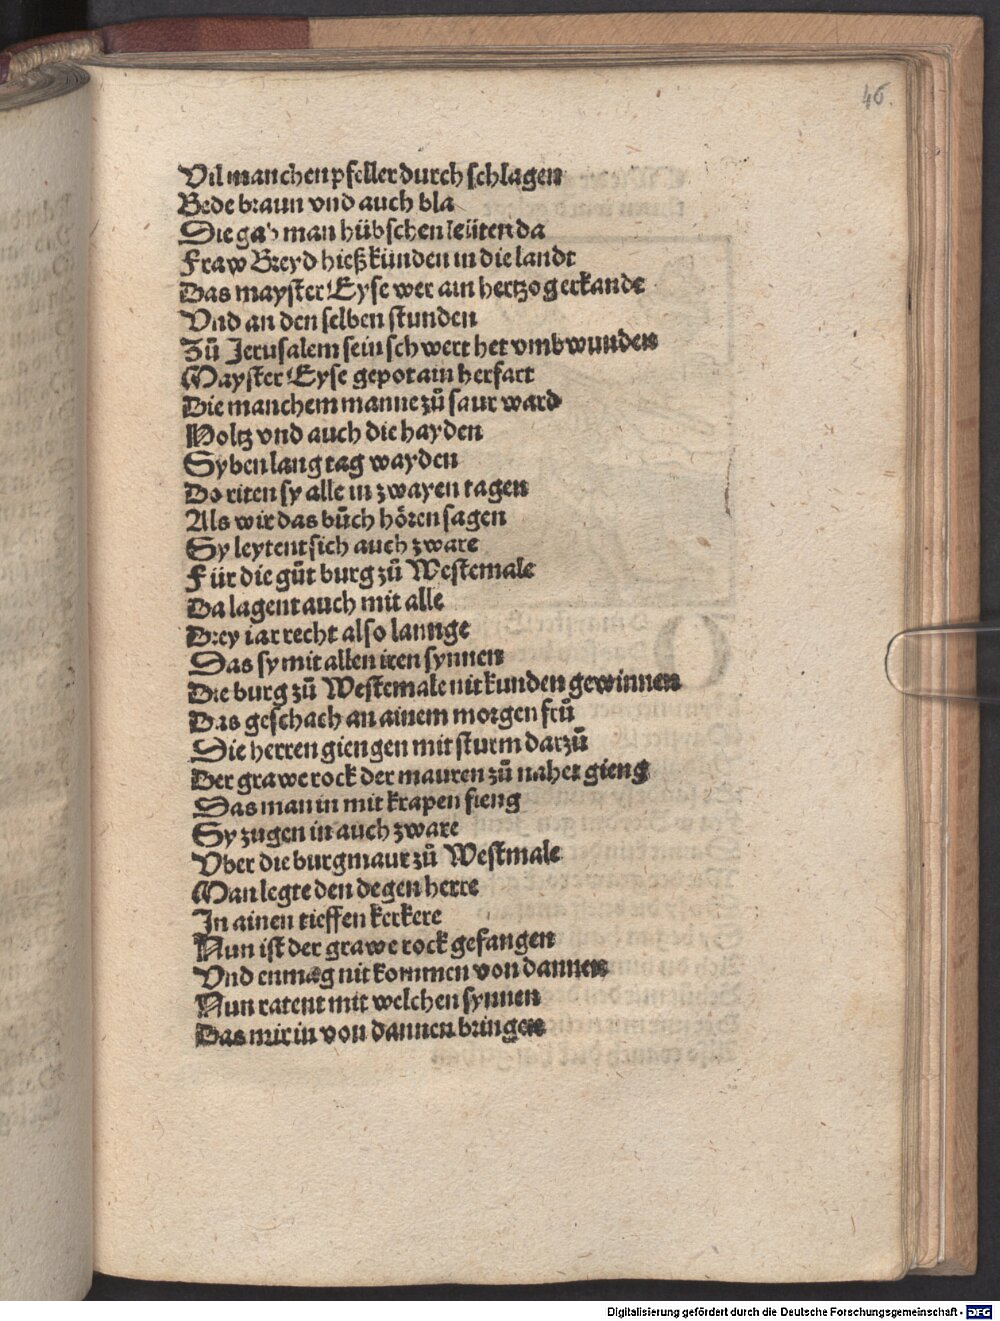 46.
Vil manchen pfeller durch schlagen
Bede braun vnd auch bla
Die gab man hübschen leüten da
Fraw Breyd hieß künden in die landt
Das mayster Eyse wer ain hertzog erkande
Vnd an den selben stunden
Zů Jerusalem sein schwert het vmbwunden
Mayster Eyse gepot ain herfart
Die manchem manne zů saur ward
Holtz vnd auch die hayden
Syben lang tag wayden
Do riten sy alle in zwayen tagen
Als wir das bůch hören sagen
Sy leytent sich auch zware
Für die gůt burg zů Westemale
Da lagent auch mit alle
Drey iar recht also lannge
Das sy mit allen iren synnen
Die burg zů Westemale nit kunden gewinnen
Das geschach an ainem morgen frů
Die herren giengen mit sturm darzů
Der grawe rock der mauren zů naher gieng
Das man in mit krapen fieng
Sy zugen in auch zware
Vber die burgmaur zů Westmale
Man legte den degen herre
In ainen tieffen kerkere
Nun ist der grawe rock gefangen
Vnd enmag nit kommen von dannen
Nun ratent mit welchen synnen
Das mir in von dannen bringen
Digitalisierung gefördert durch die Deutsche Forschungsgemeinschaft - DFG